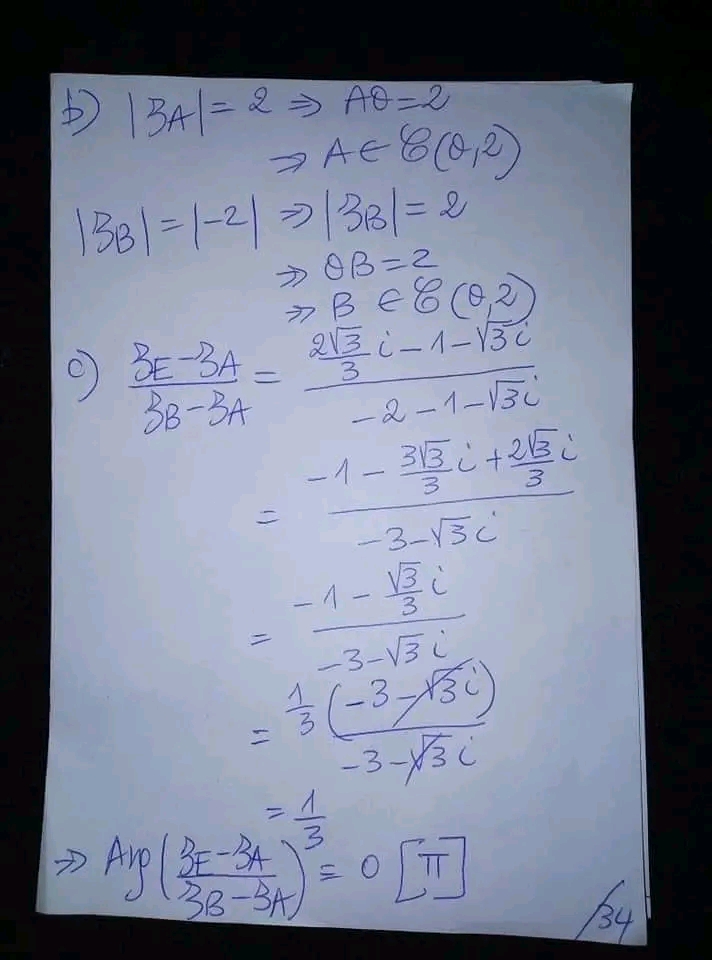 b) |zA| = 2 ⇒ AO = 2
⇒ A ∈ 𝒞(O,2)
|zB| = |-2| ⇒ |zB| = 2
⇒ OB = 2
⇒ B ∈ 𝒞(O,2)
c) (zE - zA)/(zB - zA) = (2√3/3 i - 1 - √3 i)/(-2 - 1 - √3 i)
= (-1 - 3√3/3 i + 2√3/3 i)/(-3 - √3 i)
= (-1 - √3/3 i)/(-3 - √3 i)
= 1/3 (-3 - √3 i)/(-3 - √3 i)
= 1/3
⇒ Arg((zE - zA)/(zB - zA)) = 0 [π]
/34